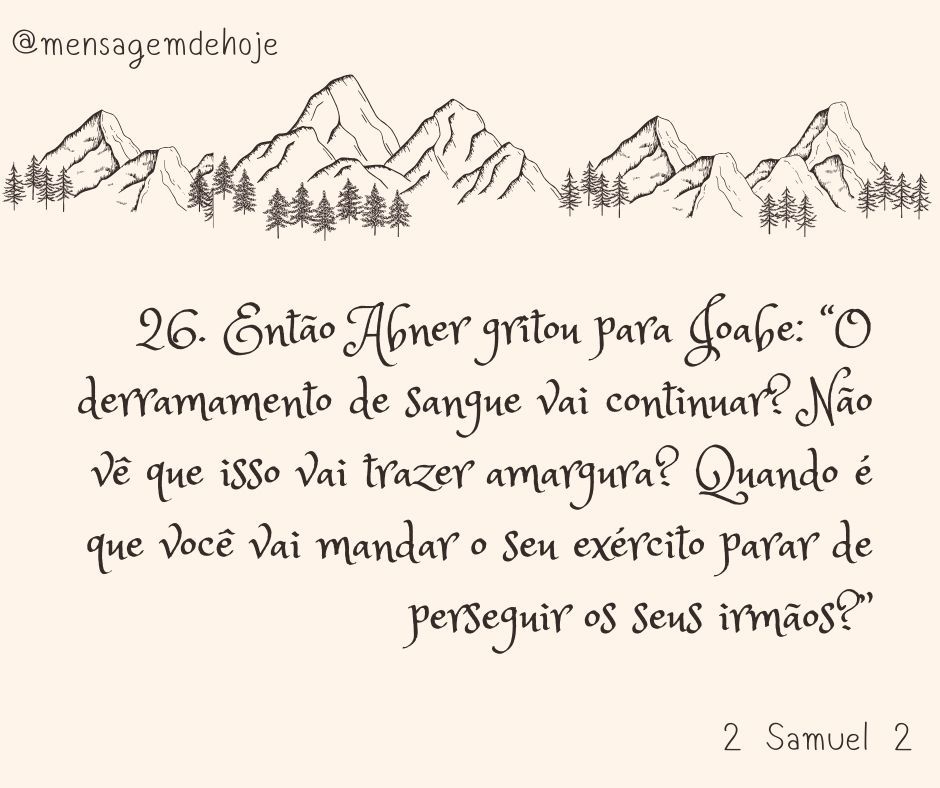 @mensagemdehoje
26. Então Abner gritou para Joabe: “O
derramamento de sangue vai continuar? Não
vê que isso vai trazer amargura? Quando é
que você vai mandar o seu exército parar de
perseguir os seus irmãos?”
2 Samuel 2